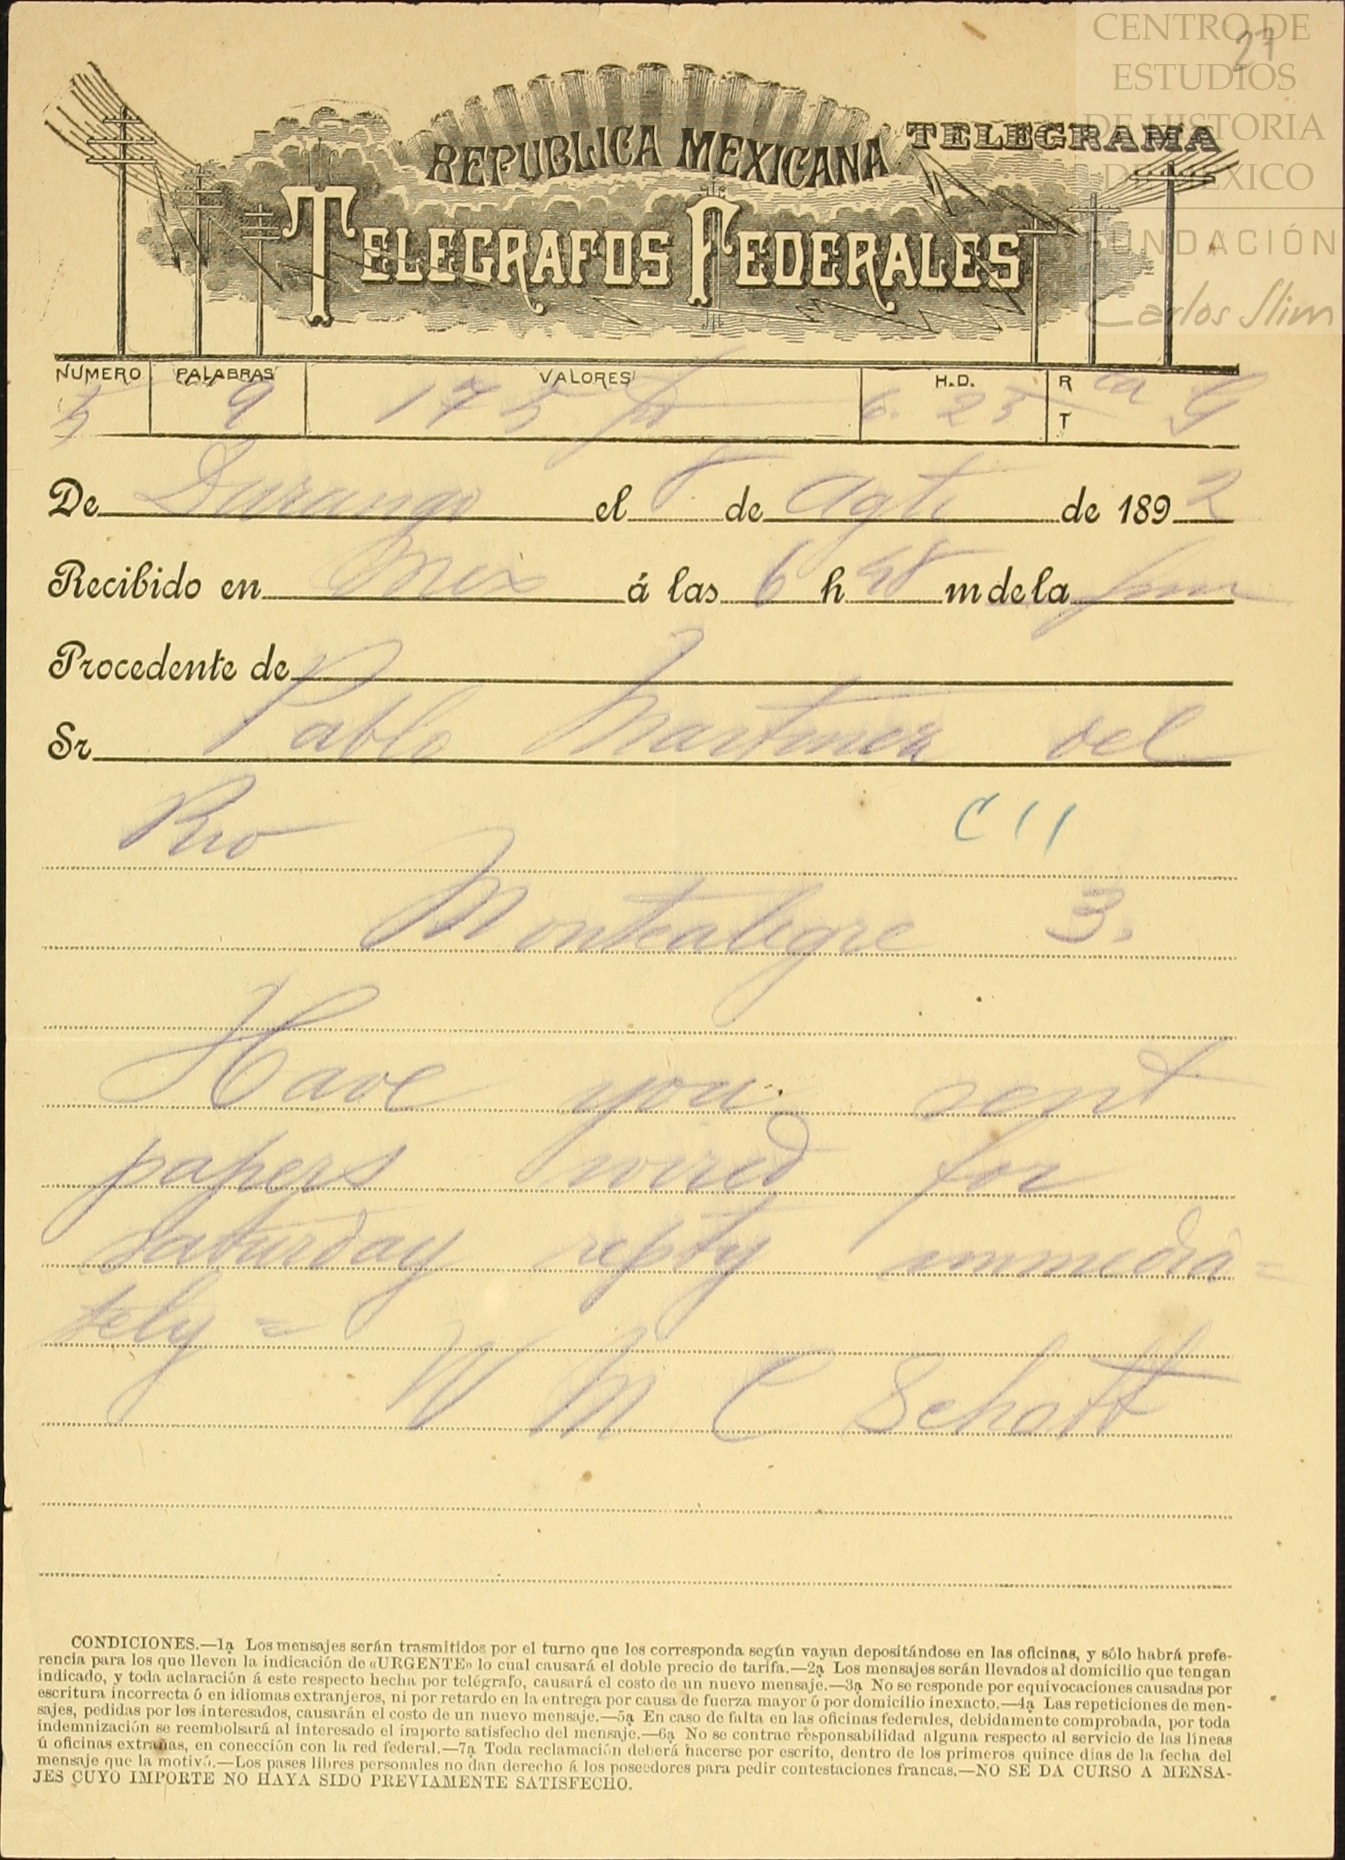 CENTRO DE
ESTUDIOS
DE HISTORIA
DE MÉXICO
FUNDACIÓN
Carlos Slim
27
REPUBLICA MEXICANA
TELEGRAMA
TELEGRAFOS FEDERALES
NUMERO PALABRAS VALORES H.D. R
5 9 175 6. 23 G
T
De Durango el 8 de Agto de 1892
Recibido en Mex á las 6 h 48 m de la pm
Procedente de
Sr Pablo Martinez del
Rio
C 11
Montealegre 3.
Have you sent
papers wired for
saturday reply immedia=
tely =
W M C Schott
CONDICIONES.—1ª Los mensajes serán trasmitidos por el turno que les corresponda según vayan depositándose en las oficinas, y sólo habrá prefe-
rencia para los que lleven la indicación de «URGENTE» lo cual causará el doble precio de tarifa.—2ª Los mensajes serán llevados al domicilio que tengan
indicado, y toda aclaración á este respecto hecha por telégrafo, causará el costo de un nuevo mensaje.—3ª No se responde por equivocaciones causadas por
escritura incorrecta ó en idiomas extranjeros, ni por retardo en la entrega por causa de fuerza mayor ó por domicilio inexacto.—4ª Las repeticiones de men-
sajes, pedidas por los interesados, causarán el costo de un nuevo mensaje.—5ª En caso de falta en las oficinas federales, debidamente comprobada, por toda
indemnización se reembolsará al interesado el importe satisfecho del mensaje.—6ª No se contrae responsabilidad alguna respecto al servicio de las líneas
ú oficinas extrañas, en conección con la red federal.—7ª Toda reclamación deberá hacerse por escrito, dentro de los primeros quince dias de la fecha del
mensaje que la motivó.—Los pases libres personales no dan derecho á los poseedores para pedir contestaciones francas.—NO SE DA CURSO A MENSA-
JES CUYO IMPORTE NO HAYA SIDO PREVIAMENTE SATISFECHO.